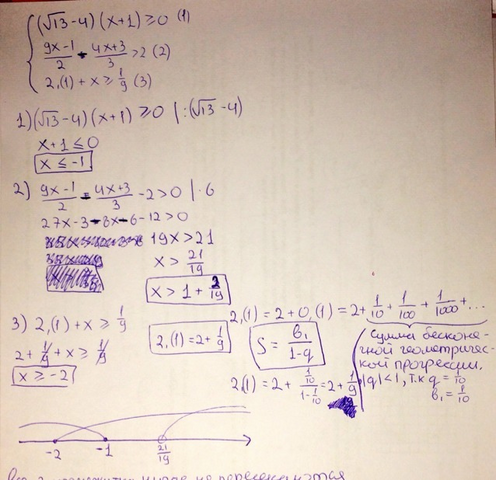 (√13-4)(x+1)≥0 (1)
9x-1/2 - 4x+3/3 >2 (2)
2,(1)+x≥1/9 (3)
1)(√13-4)(x+1)≥0 |:(√13-4)
x+1≤0
x≤-1
2) 9x-1/2 - 4x+3/3 -2>0 |·6
27x-3-8x-6-12>0
19x>21
x>21/19
x>1+2/19
3) 2,(1)+x≥1/9
2+1/9+x≥1/9
x≥-2
2,(1)=2+1/9
2,(1)=2+0,(1)=2+1/10+1/100+1/1000+...
S=b₁/1-q
Сумма бесконе-
чной геометричес-
кой прогрессии,
|q|<1, т.к q=1/10
b₁=1/10
2,(1)=2+ 1/10/1-1/10 =2+1/9
-2 -1 21/19